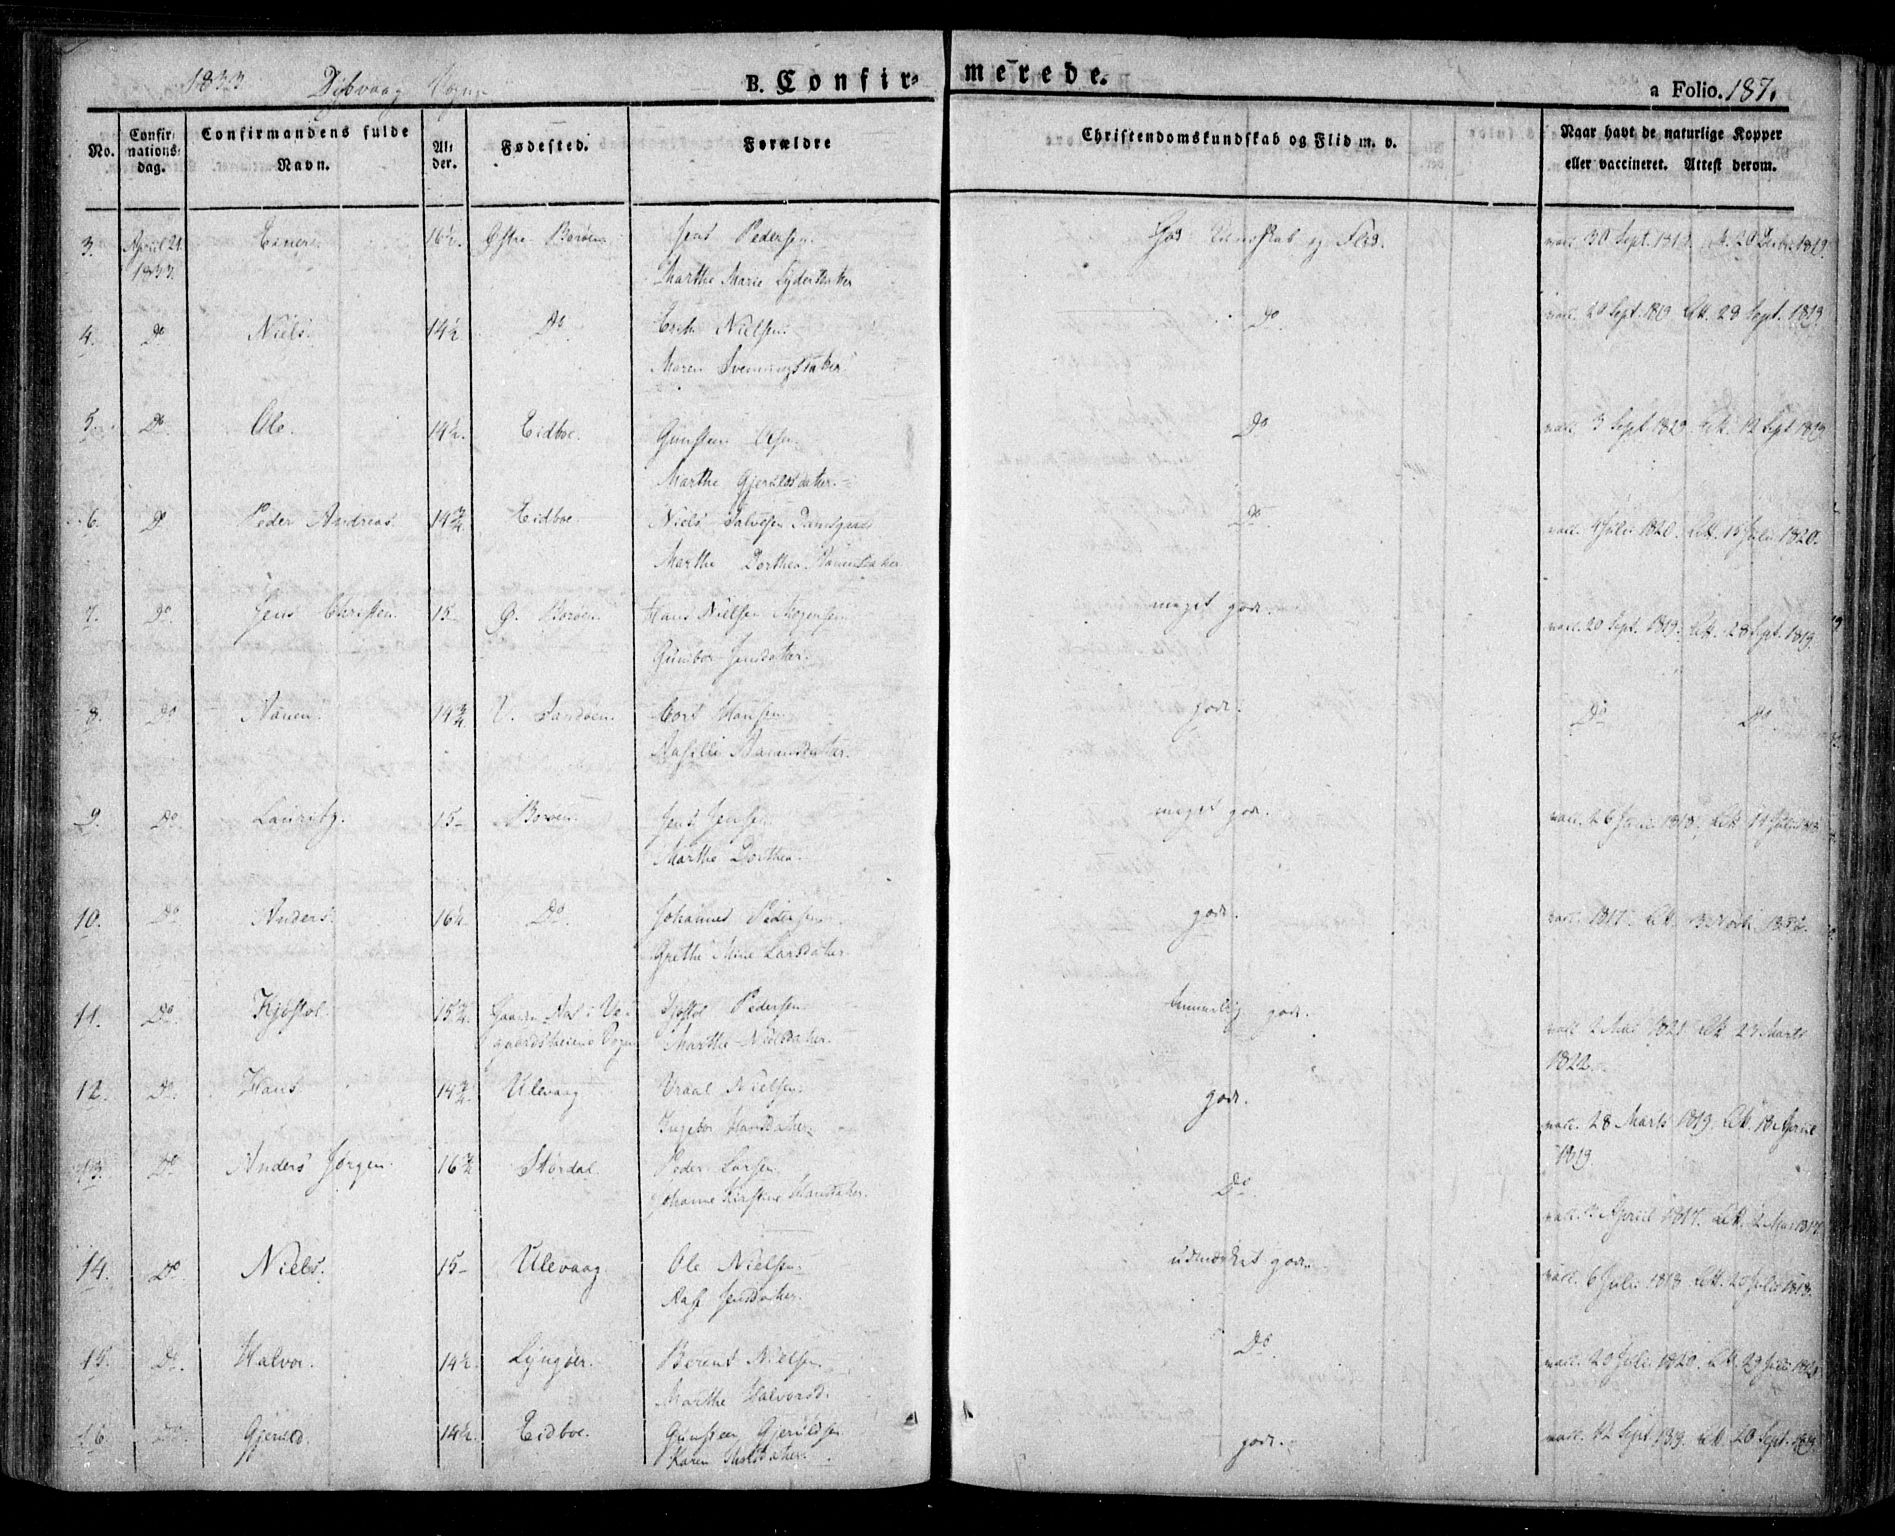 1833 Dybvaag Sogn
B. Confir-
merede.
a Folio. 187.
No. Confirmations-dag. Confirmandens fulde Navn. Alder. Fødested. Forældre Christendomskundskab og Flid m. v. Naar havt de naturlige Kopper eller vaccineret. Attest derom.
3. April 21 16½. Østre Borøen. Jens Pedersen. God Kundskab og Flid. vacc. 30 Sept.
1833. Marthe Marie
4. Do Niels. 14½. Do Nielsen. Do vacc. 20 Sept. 1819 Att. 28 Sept. 1819.
Maren Svenningsdatter
5. Do Ole. 14½. Eidboe. Gunsten Olsen. Do vacc. 3 Sept. 1819. Att. 12 Sept 1819
Marthe Gjeruldsdatter.
6. Do Peder Andreas. 14¾ Eidboe. Niels Salvesen Do vacc. 4 Juli 1820. Att. 15 Juli 1820.
Marthe Dorthea
7. Do Jens Christen. 15 Ø. Borøen. Hans Nielsen Mogensen meget god. vacc. 20 Sept. 1819. Att. 28 Sept. 1819.
Gunbor Jensdatter.
8. Do Aanen. 14¾ V. Sandøen. Cort Hansen. god. Do Do
Aanensdatter.
9. Do Lauritz. 15 Borøen. Jens Jensen meget god. vacc. 26
Marthe Dorthea.
10. Do Anders. 16½ Do Johannes Pedersen god. vacc. 1817. Att.
Grethe Marie Larsdatter.
11. Do Kjøstol. 15¾. Gaarden Aas i Ve- Pedersen temmelig god. vacc. 2 Mai 1821 Att 23 Marts
gaardsheiens Sogn Marthe Nielsdatter. 1822.
12. Do Hans 14¾ Ulevaag Vraal Nielsen. god. vacc. 28 Marts 1819. Att. 18 April
Ingebor Hansdatter. 1819.
13. Do Anders Jørgen. 16¾ Størdal. Peder Larsen. Do
Johanne Kirstine Hansdatter. vacc. April 1817. Att. 2 Mai 1817.
14. Do Niels. 15 Ulevaag. Ole Nielsen. udmærket god. vacc. 6 Juli 1818. Att. 20 Juli 1818.
Aase Jensdatter.
15. Do Halvor. 14½. Lyngøer. Berent Nielsen. Do vacc. 20 Juli 1820. Att. 29 Juli 1820
Marthe Halvorsd.
16. Do Gjeruld. 14½. Eidboe. Gunsten Gjeruldsen god. vacc. 12 Sept. 1819. Att. 20 Sept. 1819.
Karen